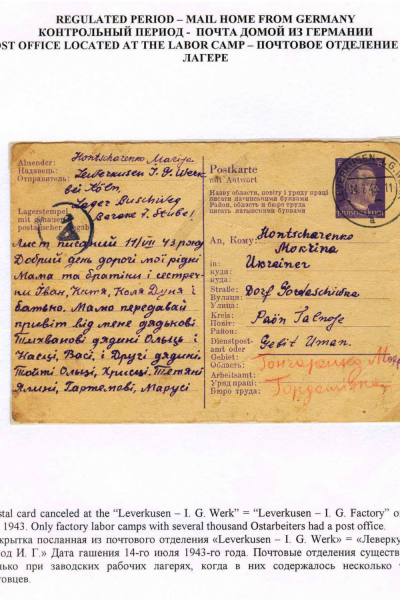 REGULATED PERIOD – MAIL HOME FROM GERMANY
КОНТРОЛЬНЫЙ ПЕРИОД - ПОЧТА ДОМОЙ ИЗ ГЕРМАНИИ
OST OFFICE LOCATED AT THE LABOR CAMP – ПОЧТОВОЕ ОТДЕЛЕНИЕ
ЛАГЕРЕ
Absender: Hontscharenko Marija
Надавець:
Отправитель: Leverkusen I. G. Werk
bei Köln,
Lager Buschweg
Lagerstempel
mit
Barake 7. Stube!
Postkarte
mit Antwort
Назву області, повіту і уряду праці
писати латинськими буквами
Район, область и бюро труда
писать латинскими буквами
LEVERKUSEN I.G.
11
DEUTSCHES REICH
Лист писаний 11/VII 43 року
Добрий день дорогі мої рідні
Мама та братіки і сестреч-
ки Іван, Катя, Коля Дуня і
батьно. Мамо передавай
привіт від мене дядькові
дядині Ользь и
Насці, Васі, и Другі дядині
Ользі, Христі, Тетяні
Ялині, Марусі
An, Кому: Hontscharenko
Mokrina
in Ukrainer
куди:
куда:
Straße: Dorf Gordaschiwka
Вулиця:
Улица:
Kreis: Paön Talnoje
Повіт:
Район:
Dienstpost-
amt oder Gebit Uman.
Gebiet:
Область:
Arbeitsamt:
Уряд праці:
Бюро труда:
Гордашівка
stal card canceled at the “Leverkusen – I. G. Werk” = “Leverkusen – I. G. Factory” o
1943. Only factory labor camps with several thousand Ostarbeiters had a post office.
крытка посланная из почтового отделения «Leverkusen – I. G. Werk» = «Леверку
од И. Г.» Дата гашения 14-го июля 1943-го года. Почтовые отделения существ
лько при заводских рабочих лагерях, когда в них содержалось несколько т
товцев.